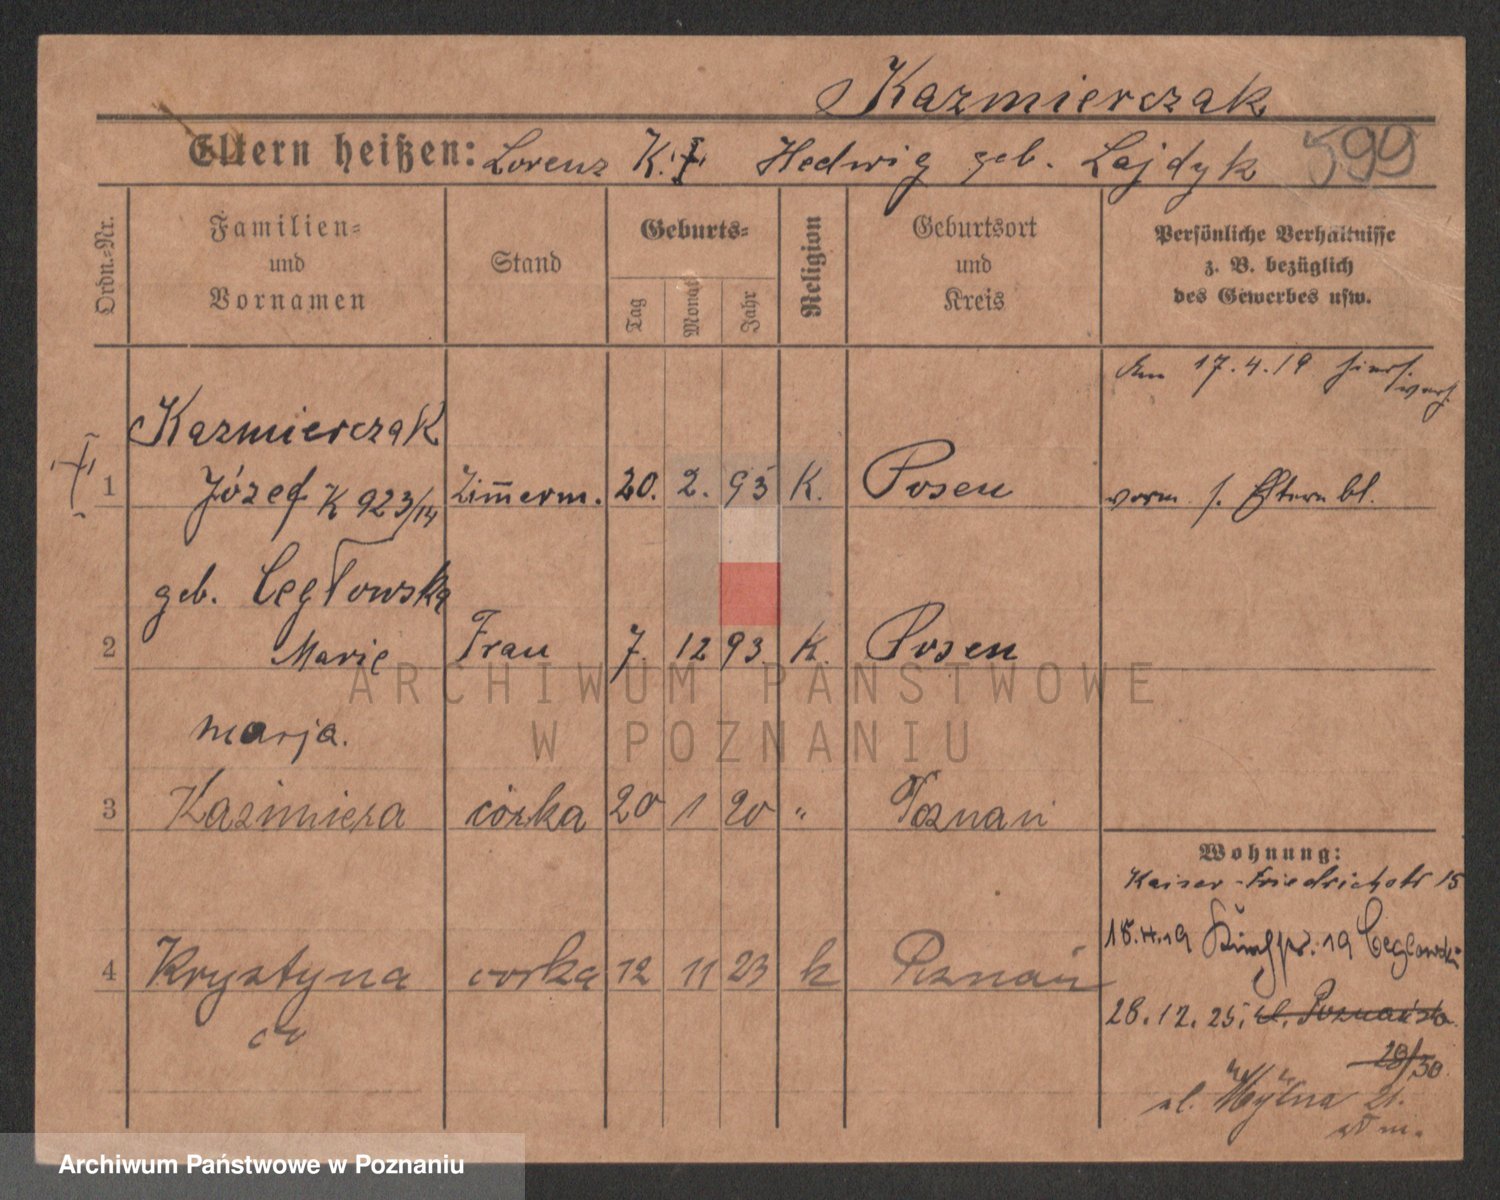 Kazmierczak
Eltern heißen: Lorenz K. Hedwig geb. Lajdyk 599
Ordn.-Nr.
Familien-
und
Vornamen
Stand
Geburts-
Tag
Monat
Jahr
Religion
Geburtsort
und
Kreis
Persönliche Verhältnisse
z. B. bezüglich
des Gewerbes usw.
am 17.4.19
Kazmierczak
1 Józef K 923/14 Zim̅erm. 20. 2. 93 K. Posen vorm. s. Eltern bl.
geb. Cegłowska
2 Marie Frau 7. 12 93 K. Posen
marja.
3 Kazimiera córka 20 1 20 " Poznań
Wohnung:
Kaiser-Friedrichstr 15
4 Krystyna corka 12 11 23 k Poznań
19 Ceglowski
28.12.25. ul. Poznańska
28/30
ul. Młyńska 21.
ARCHIWUM PAŃSTWOWE
W POZNANIU
Archiwum Państwowe w Poznaniu